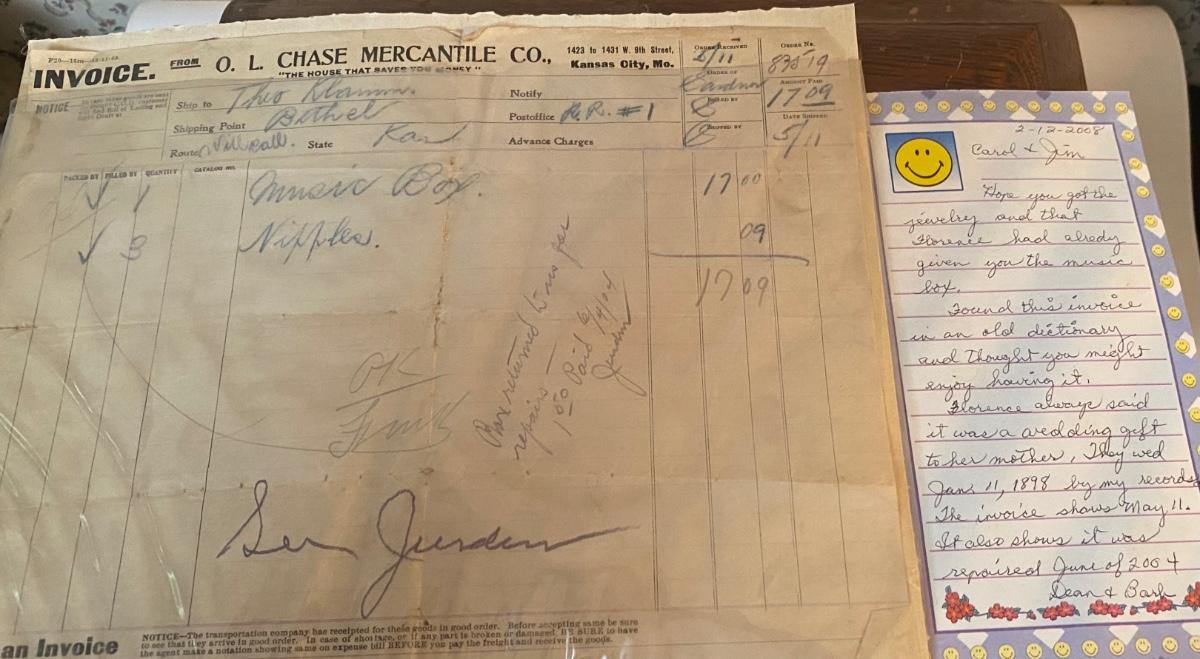 INVOICE.
FROM O. L. CHASE MERCANTILE CO.,
"THE HOUSE THAT SAVES YOU MONEY"
1423 to 1431 W. 9th Street,
Kansas City, Mo.
ORDER RECEIVED
5/11
ORDER NO.
83519
NOTICE
Ship to Theo Klamm.
Notify
ORDER OF
AMOUNT PAID
1709
Shipping Point Bethel
Postoffice R.R. #1
BILLED BY
Route Will call. State Kan
Advance Charges
SHIPPED BY
DATE SHIPPED
5/11
PACKED BY FILLED BY QUANTITY CATALOG NO.
1 Music Box. 17 00
3 Nipples. 09
17 09
Box returned for
repairs
1 00 Paid 6/14/04
Jurden
OK
Jurden
an Invoice
NOTICE—The transportation company has receipted for these goods in good order. Before accepting same be sure
to see that they arrive in good order. In case of shortage, or if any part is broken or damaged, BE SURE to have
the agent make a notation showing same on expense bill BEFORE you pay the freight and receive the goods.
2-12-2008
Carol & Jim
Hope you got the
jewelry and that
Florence had alredy
given you the music
box.
Found this invoice
in an old dictionary
and thought you might
enjoy having it.
Florence always said
it was a wedding gift
to her mother. They wed
Jan. 11, 1898 by my records.
The invoice shows May 11.
It also shows it was
repaired June of 2004
Dean & Barb